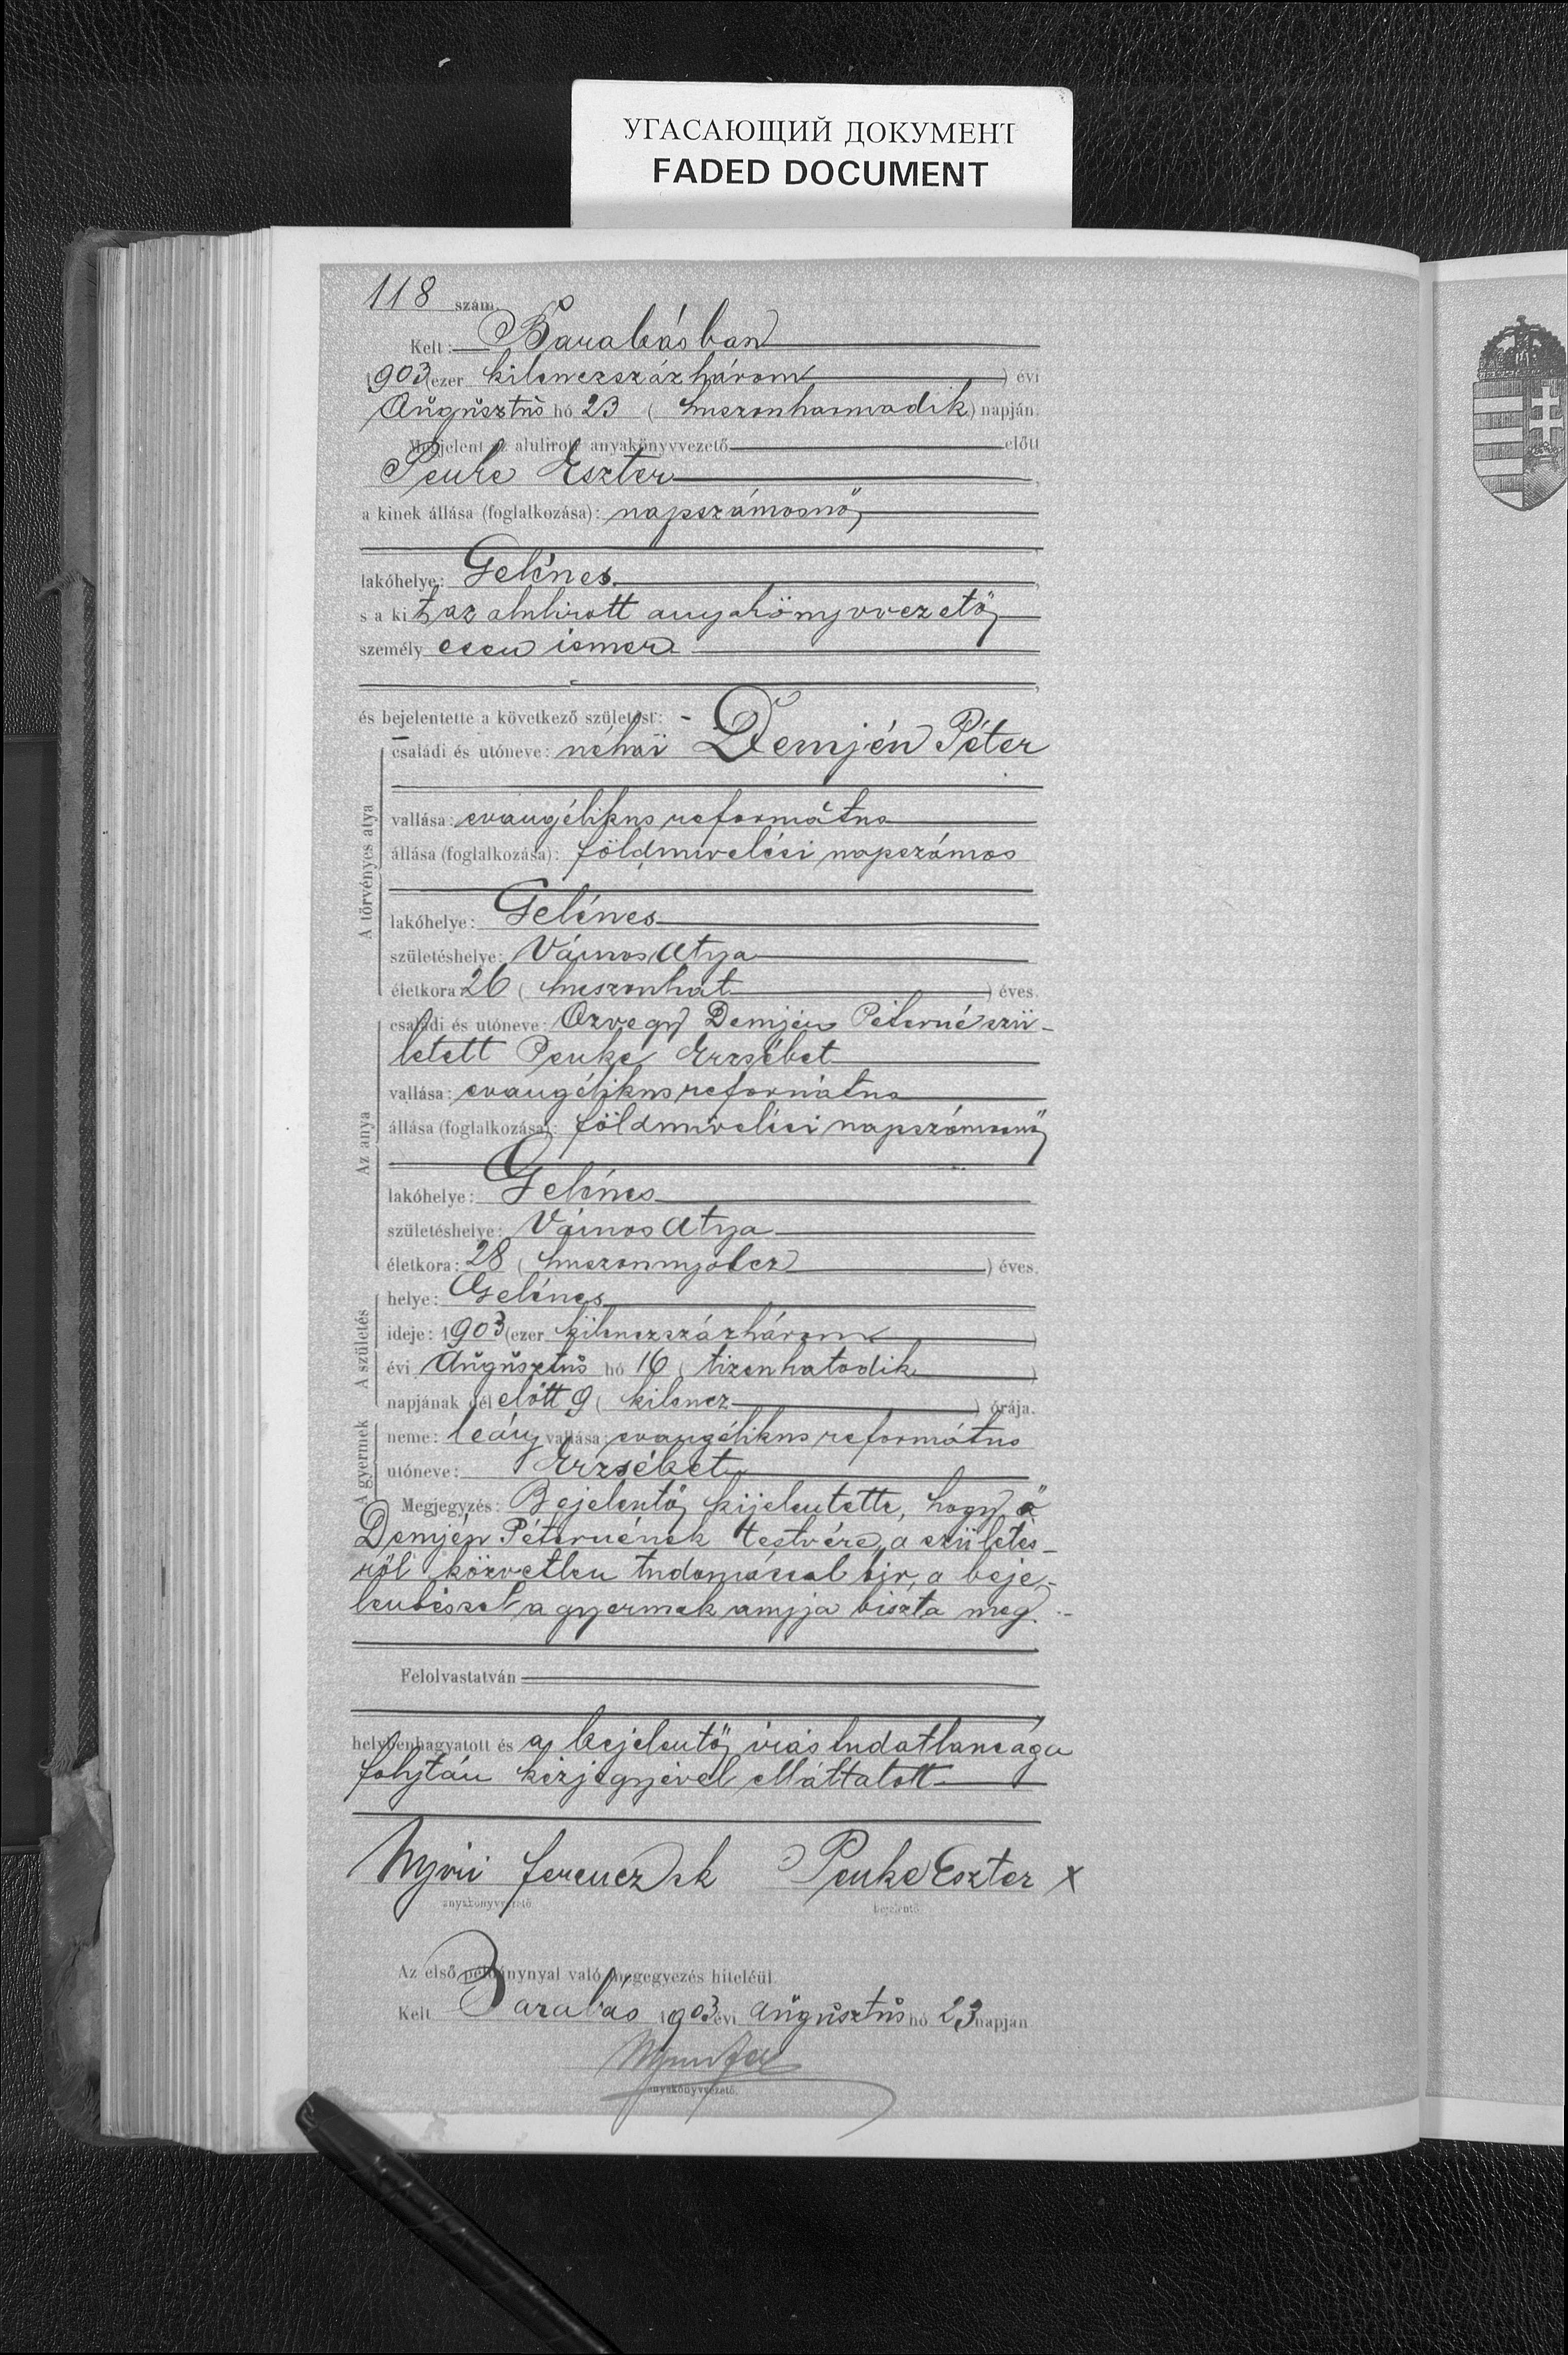 УГАСАЮЩИЙ ДОКУМЕНТ
FADED DOCUMENT
118 szám.
Kelt: Barabásban
1903 (ezer kilenczszázhárom) évi
Augusztus hó 23 (huszonharmadik) napján.
Megjelent az alulirott anyakönyvvezető előtt
Penke Eszter,
a kinek állása (foglalkozása): napszámosnő,
lakóhelye: Gelénes,
s a kit az alulirott anyakönyvvezető
személyesen ismer
és bejelentette a következő születést: -
A törvényes atya
családi és utóneve: néhai Demjén Péter
vallása: evangélikus református
állása (foglalkozása): földmivelési napszámos
lakóhelye: Gelénes
születéshelye: Vámos Atya
életkora: 26 (huszonhat) éves.
Az anya
családi és utóneve: Özvegy Demjén Péterné szü-
letett Penke Erzsébet
vallása: evangélikus református
állása (foglalkozása): földmivelési napszámosnő
lakóhelye: Gelénes
születéshelye: Vámos Atya
életkora: 28 (huszonnyolcz) éves.
A születés
helye: Gelénes
ideje: 1903 (ezer kilenczszázhárom)
évi Augusztus hó 16 (tizenhatodik)
napjának dél előtt 9 (kilencz) órája.
A gyermek
neme: leány vallása: evangélikus református
utóneve: Erzsébet
Megjegyzés: Bejelentő kijelentette, hogy ő
Demjén Péternének testvére, a születés-
ről közvetlen tudomással bir, a beje-
lentéssel a gyermek anyja bizta meg. -
Felolvastatván
helybenhagyatott és a bejelentő irástudatlansága
folytán kézjegyével elláttatott
Nyiri Ferencz sk Penke Eszter x
anyakönyvvezető bejelentő
Az első példánynyal való megegyezés hiteléül.
Kelt Barabás 1903 évi Augusztus hó 23 napján
anyakönyvvezető.